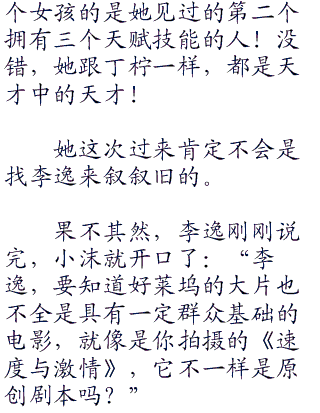 个女孩的是她见过的第二个
拥有三个天赋技能的人！没
错，她跟丁柠一样，都是天
才中的天才！
她这次过来肯定不会是
找李逸来叙叙旧的。
果不其然，李逸刚刚说
完，小沫就开口了：“李
逸，要知道好菜坞的大片也
不全是具有一定群众基础的
电影，就像是你拍摄的《速
度与激情》，它不一样是原
创剧本吗？”